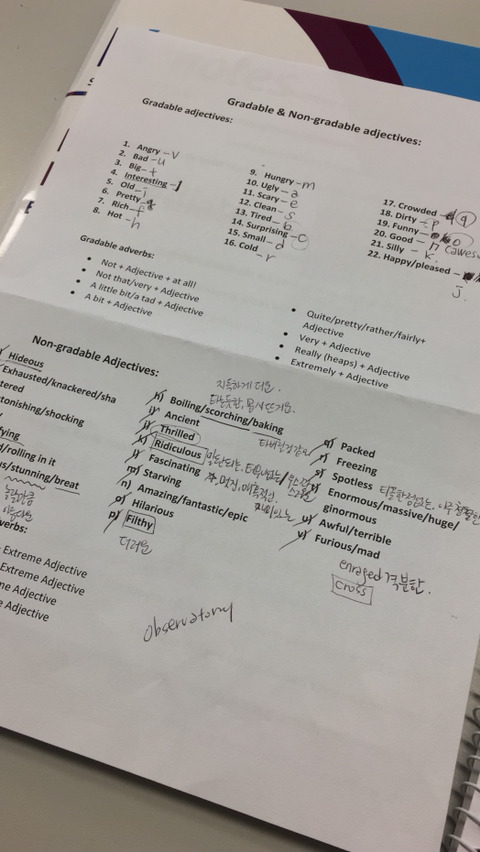 Gradable & Non-gradable adjectives:
Gradable adjectives:
1. Angry – v
2. Bad – u
3. Big – t
4. Interesting –
5. Old –
6. Pretty –
7. Rich – f
8. Hot – h
9. Hungry – m
10. Ugly – a
11. Scary – e
12. Clean – s
13. Tired – b
14. Surprising –
15. Small – d
16. Cold – r
17. Crowded – q
18. Dirty – p
19. Funny – o
20. Good – n
21. Silly – k
22. Happy/pleased – j
Gradable adverbs:
• Not + Adjective + at all!
• Not that/very + Adjective
• A little bit/a tad + Adjective
• A bit + Adjective
• Quite/pretty/rather/fairly+
Adjective
• Very + Adjective
• Really (heaps) + Adjective
• Extremely + Adjective
Non-gradable Adjectives:
Hideous
Exhausted/knackered/sha
tered
tonishing/shocking
fying
/rolling in it
us/stunning/breat
verbs:
Extreme Adjective
Extreme Adjective
me Adjective
e Adjective
h) Boiling/scorching/baking
i) Ancient
j) Thrilled
k) Ridiculous
l) Fascinating
m) Starving
n) Amazing/fantastic/epic
o) Hilarious
p) Filthy
더러운
q) Packed
r) Freezing
s) Spotless
t) Enormous/massive/huge/
ginormous
u) Awful/terrible
v) Furious/mad
enraged 격분한.
cross
observatory